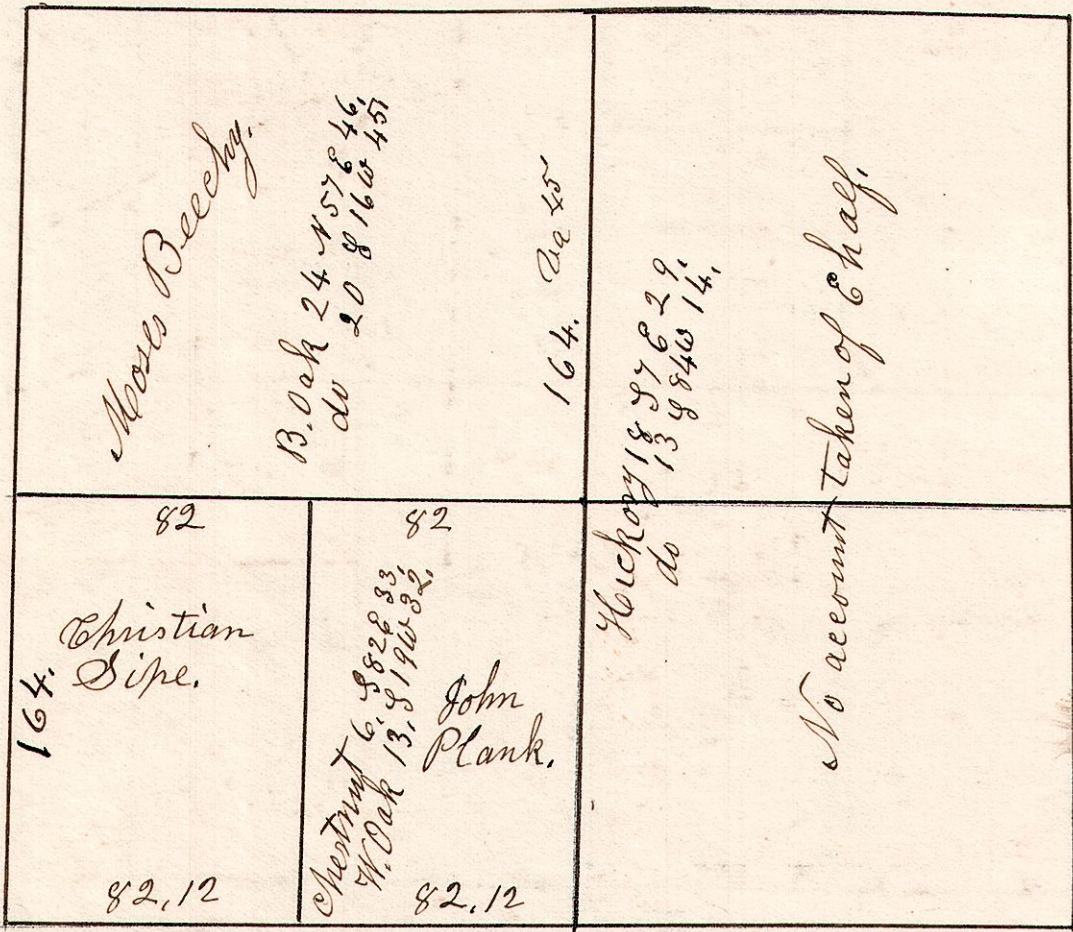 Moses Beechy.
B. Oak 24 N 57 E 46,
do 20 S 16 W 45,
164.
Hickory 18 S 7 E 29,
do 13 S 84 W 14,
No account taken of E half.
82
Christian
Sipe.
164.
82,12
82
Chestnut 6, S 82 E 33,
W. Oak 13, S 19 W 32,
John
Plank.
82,12